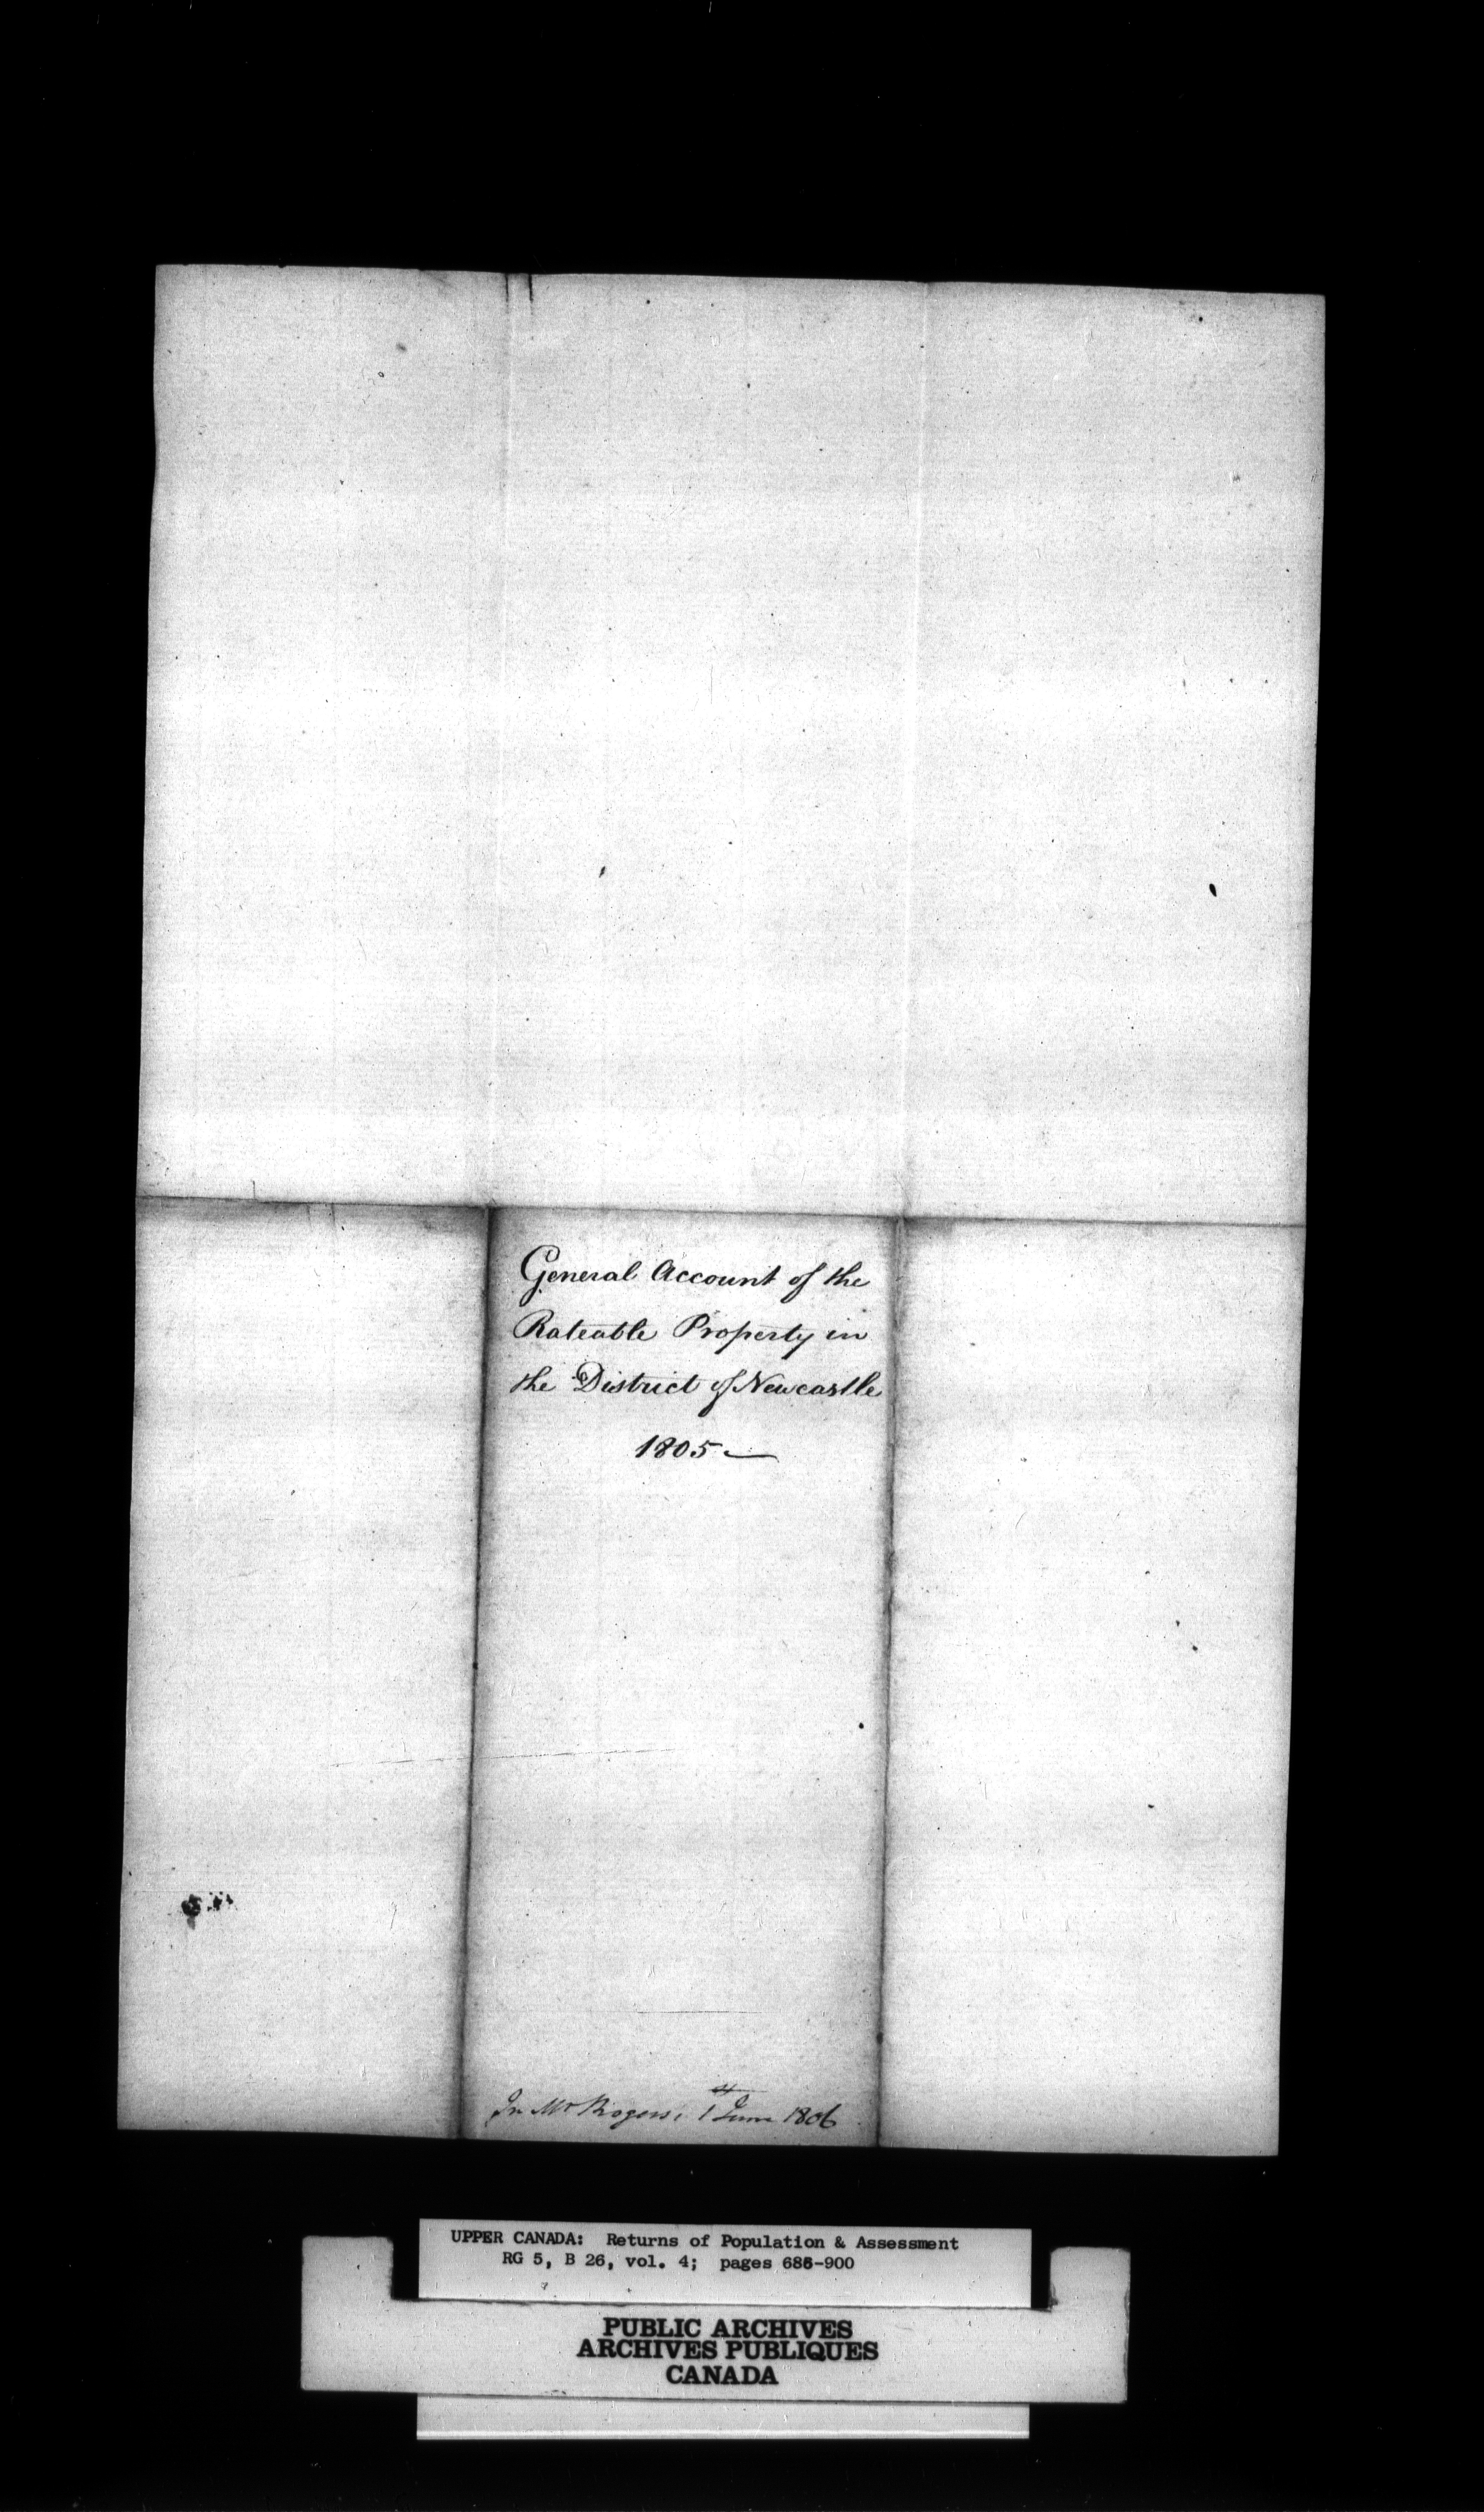 General Account of the
Rateable Property in
the District of Newcastle
1805 —
In Mr Rogers, 1st June 1806
UPPER CANADA: Returns of Population & Assessment
RG 5, B 26, vol. 4; pages 686-900
PUBLIC ARCHIVES
ARCHIVES PUBLIQUES
CANADA